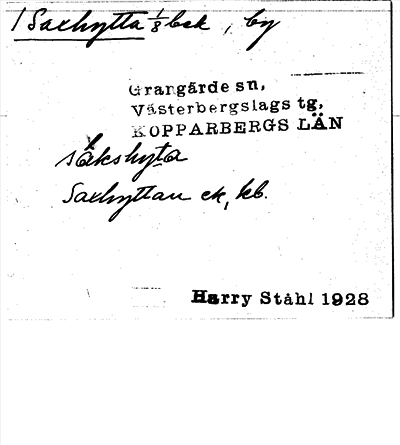 1 Saxhytta 1/8 bsk, by
Grangärde sn,
Västerbergslags tg,
KOPPARBERGS LÄN
sàkshyta
Saxhyttan ek, kb.
Harry Ståhl 1928